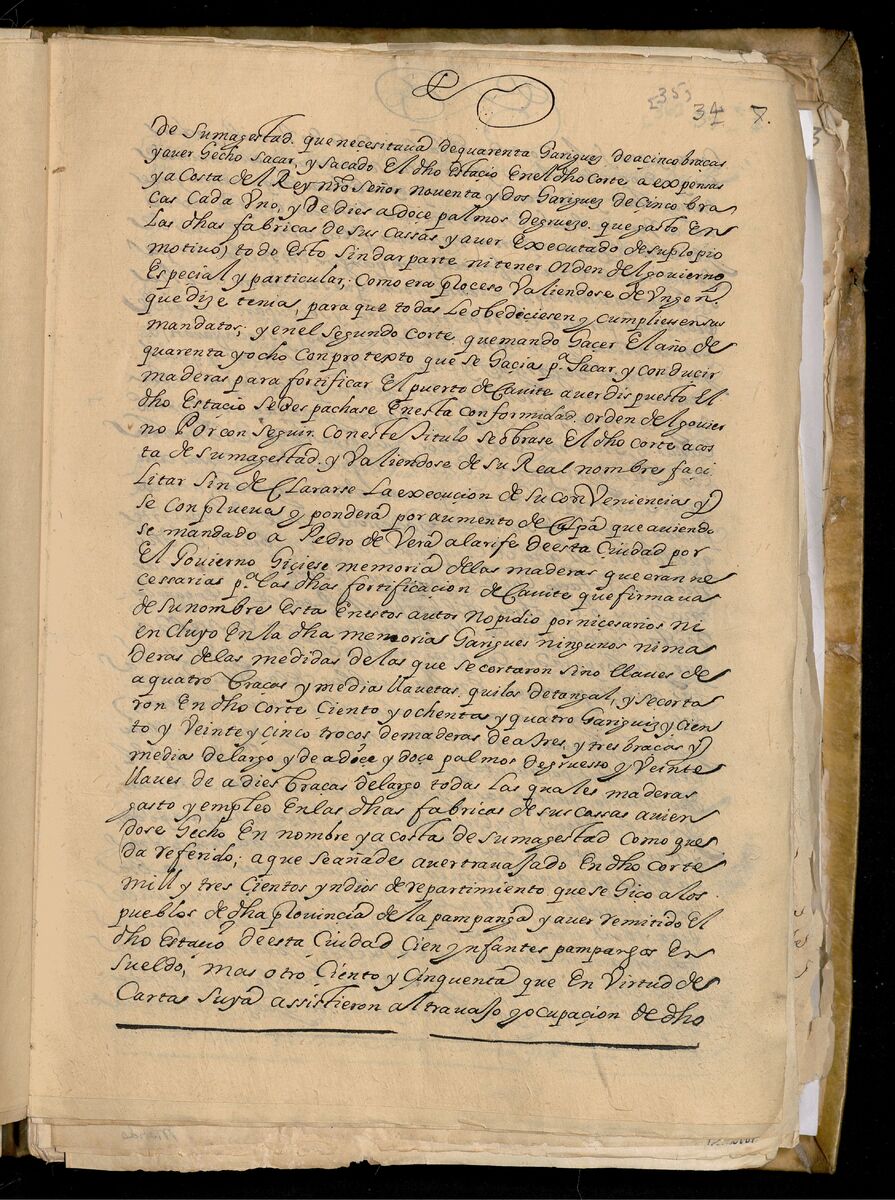 [35]
34 8.
de Sumagestad. que necesitaua de quarenta Gariguez de a cinco bracas
y auer Gecho Sacar, y sacado El dho Estacio En el dho Corte a expensas
y a Costa del Rey nro Señor nouenta y dos Gariguez de Cinco bra
cas Cada Vno, y de dies a doce palmos de gruezo. que gasto En
Las dhas fabricas de sus Cassas, y auer Executado de su plopio
motiuo, todo Esto sin dar parte ni tener Orden del gouierno
Especial y particular, Como era ploceso Valiendose de Vn gen.l
que dize tenia, para que todas Le obedeciesen y Cumpliessen sus
mandatos; y en el Segundo Corte que mando Gacer El año de
quarenta y ocho Con protexto que se Gaçia p.a Sacar, y conducir
maderas para fortificar El puerto de Cauite auer dispuesto El
dho Estacio Se des pachase En esta Conformidad. orden del gouier
no Por con Seguir. Con este titulo se obrase El dho Corte a cos
ta de Sumagestad. y Valiendose de Su Real nombre façi
Litar Sin de Clararse La execucion de Su con Veniencias y
Se Conpluevas y ponderà por aumento de Culpa que auiendo
se mandado a Pedro de Vera alarife de esta Ciudad por
El Gouierno Giçiese memoria de las maderas que eran ne
çessarias p.a las dhas fortificacion de Cauite que firmauas
de su nombre Esta En estos autos No pidio por nicesarios ni
en cluyo En la dha memorias Garigues ningunos ni ma
deras de las medidas de las que se cortaron sino llaues de
a quatro bracas y media llauetas, quilos de tangal, y se corta
ron En dho Corte Çiento y ochenta y quatro Gariguiz y Cien
to y Veinte y Cinco trocos de maderas de a tres, y tres bracas y
media de largo y de a dòce y doce palmos de gruesso y Veinte
llaues de a dies bracas de largo todas Las quales maderas
gasto y empleo En las dhas fabricas de sus Cassas auien
dose Gecho En nombre y a costa de Sumagestad Como que
da referido; a que se añade auer trauajado En dho Corte
mill y tres Cientos yndios de repartimiento que se Gico a los
pueblos de dha plouincia de la pampanga y auer remitido El
dho Estacio de esta Ciudad Çien ynfantes pampangos En
Sueldo, mas otro Çiento y Çinquenta que En Virtud de
Cartas Suya assistieron al trauajo y ocupaçion de dho